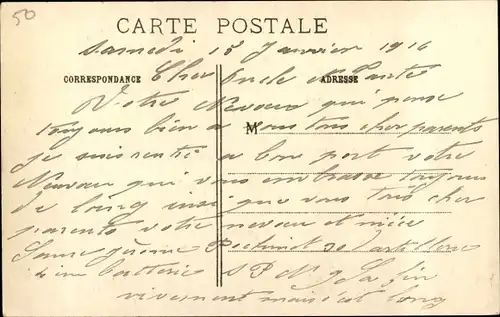 50
CARTE POSTALE
Samedi 15 Janvier 1916
CORRESPONDANCE ADRESSE
Cher Oncle et Tante
Votre Neveux qui pense
toujours bien a Vous tous cher parents
M
je suis rentré a bon port votre
Neuveux qui vous embrasse toujours
de loing insi que vous tous cher
parents votre neveux et niéce
d'artillerie
batterie S P N 9 La fin
vivement mais c'est long